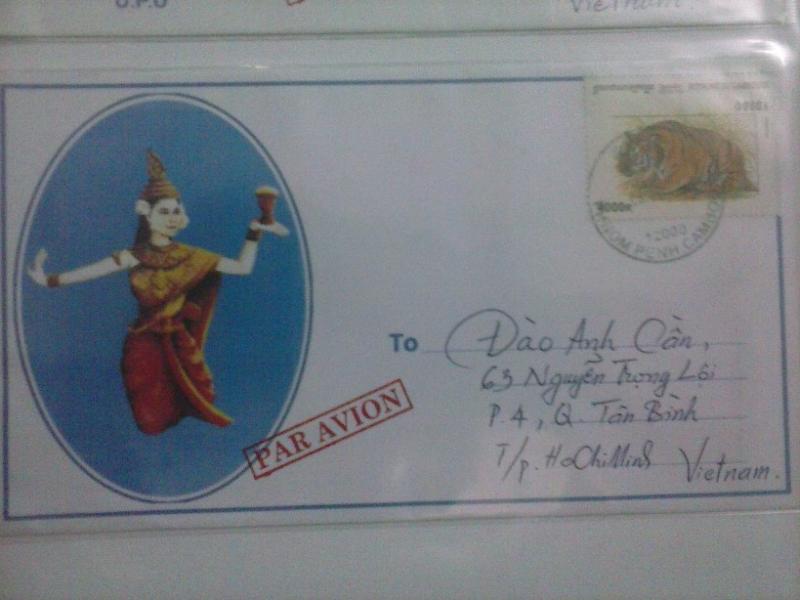 U.P.U
Vietnam.
4000R
12000
PHNOM PENH CAMBODGE
To Đào Anh Cần,
63 Nguyễn Trọng Lội
P.4, Q. Tân Bình
T/p. HoChiMinh Vietnam.
PAR AVION